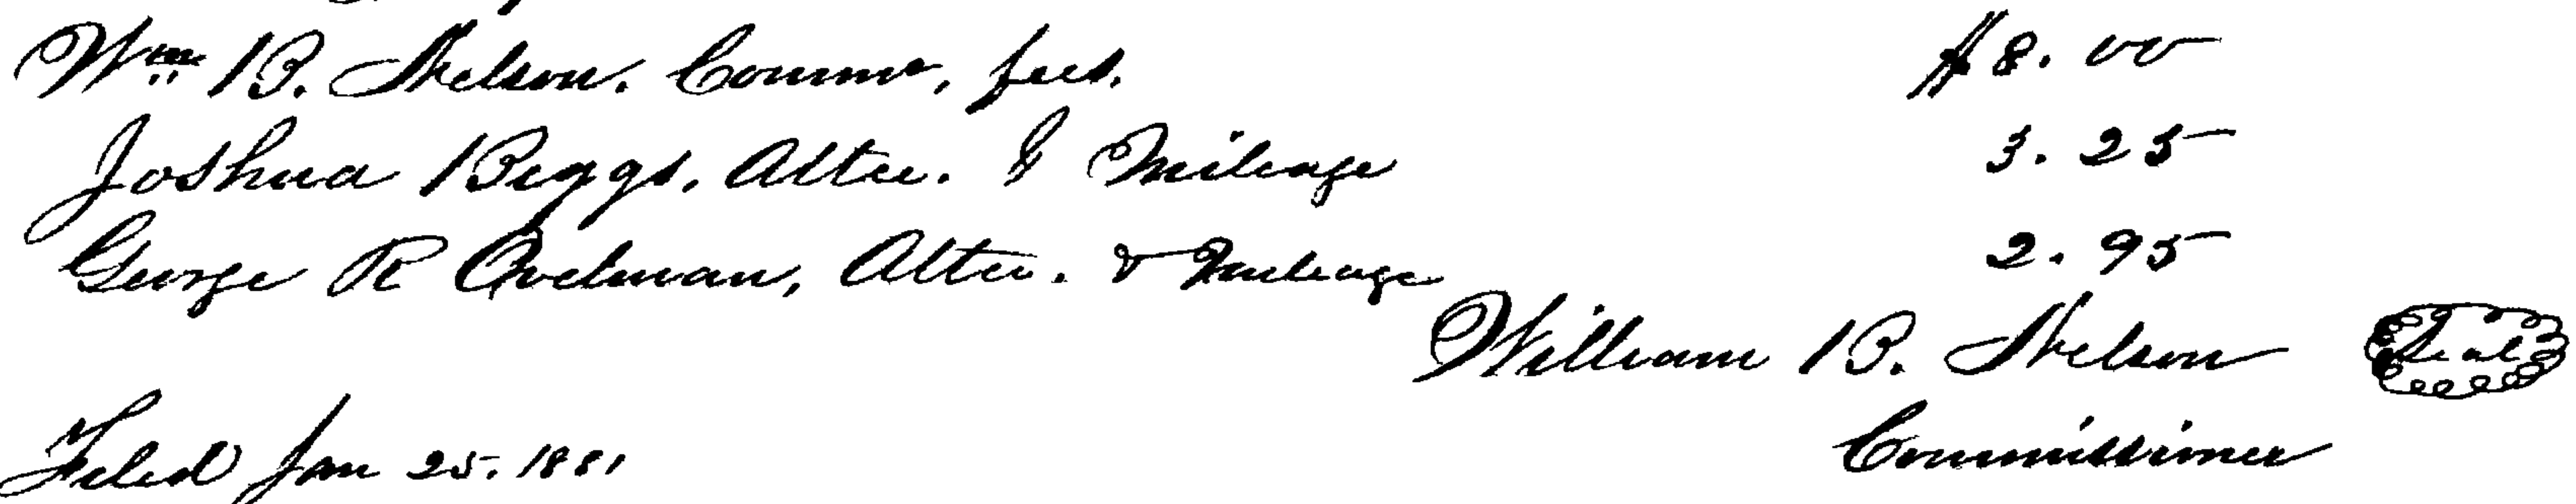 Wm B. Nelson. Commr, fees. $8.00
Joshua Biggs, Atten. & Mileage 3.25
George R Ovelman, Atten. & Mileage 2.95
William B. Nelson Seal
Commissioner
Filed Jan 25. 1881